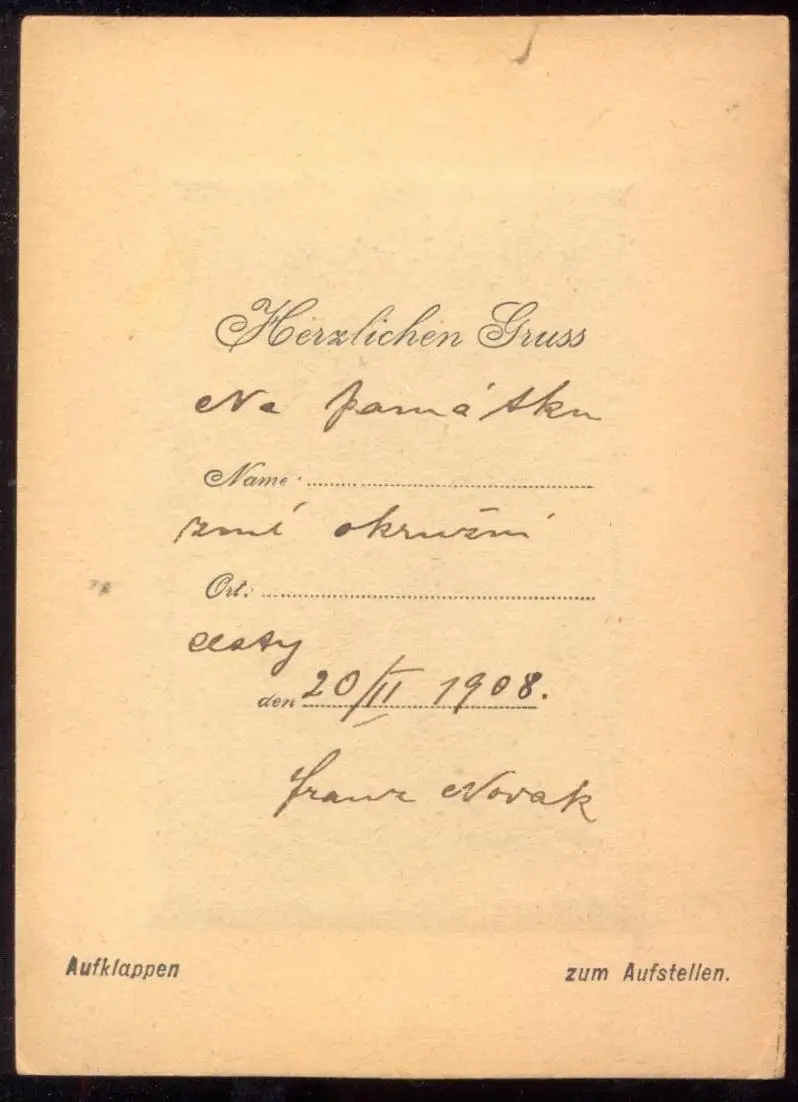 Herzlichen Gruss
Na památku
Name:
zmé okružní
Ort:
cesty
den 20/II 1908.
Franz Novak
Aufklappen
zum Aufstellen.